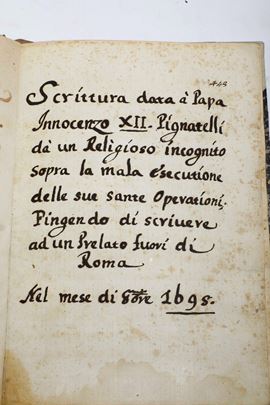 448
Scrittura data à Papa
Innocenzo XII. Pignatelli
dà un Religioso incognito
sopra la mala esecutione
delle sue sante Operationi,
Pingendo di scrivere
ad un Prelato fuori di
Roma
Nel mese di 8bre 1698.